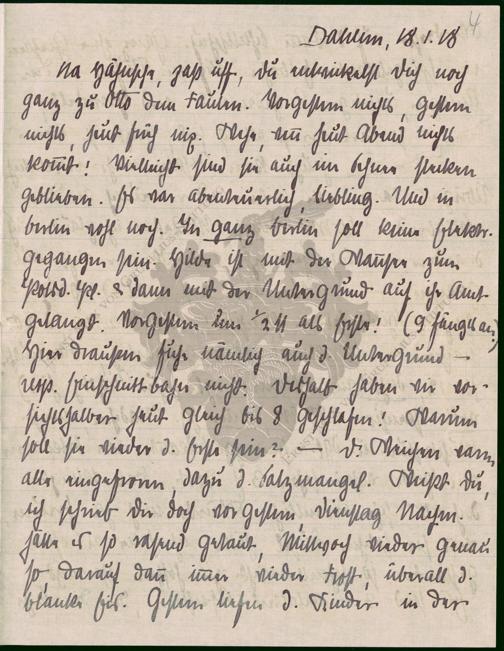 4
Dahlem, 18.1.18
Na Häsische, paß uff, du entwickelst Dich noch
ganz zu Otto dem Faulen. Vorgestern nichts, gestern
nichts, heut früh nix. Wehe, wenn heut Abend nichts
kommt! Vielleicht sind sie auch im Schnee stecken
geblieben. Es war abenteuerlich, Liebling. Und in
Berlin wohl noch. In ganz Berlin soll keine Elektr.
gegangen sein. Hilde ist mit der Wannsee zum
Potsd. Pl. & dann mit der Untergrund auf ihr Amt
gelangt. Vorgestern um 1/2 11 als Erste! (9 fängts an.)
Hier draußen fuhr nämlich auch d. Untergrund —
resp. Einschnittbahn nicht. Deshalb haben wir vor-
sichtshalber heut gleich bis 8 geschlafen! Warum
soll sie wieder d. Erste sein? — D. Weichen waren
alle eingefroren, dazu d. Salzmangel. Weißt Du,
ich schrieb dir doch vorgestern, Dienstag Nachm.
hätte es so rasend getaut, Mittwoch wieder genau
so, darauf dann immer wieder Frost, überall d.
blanke Eis. Gestern liefen d. Kinder in der